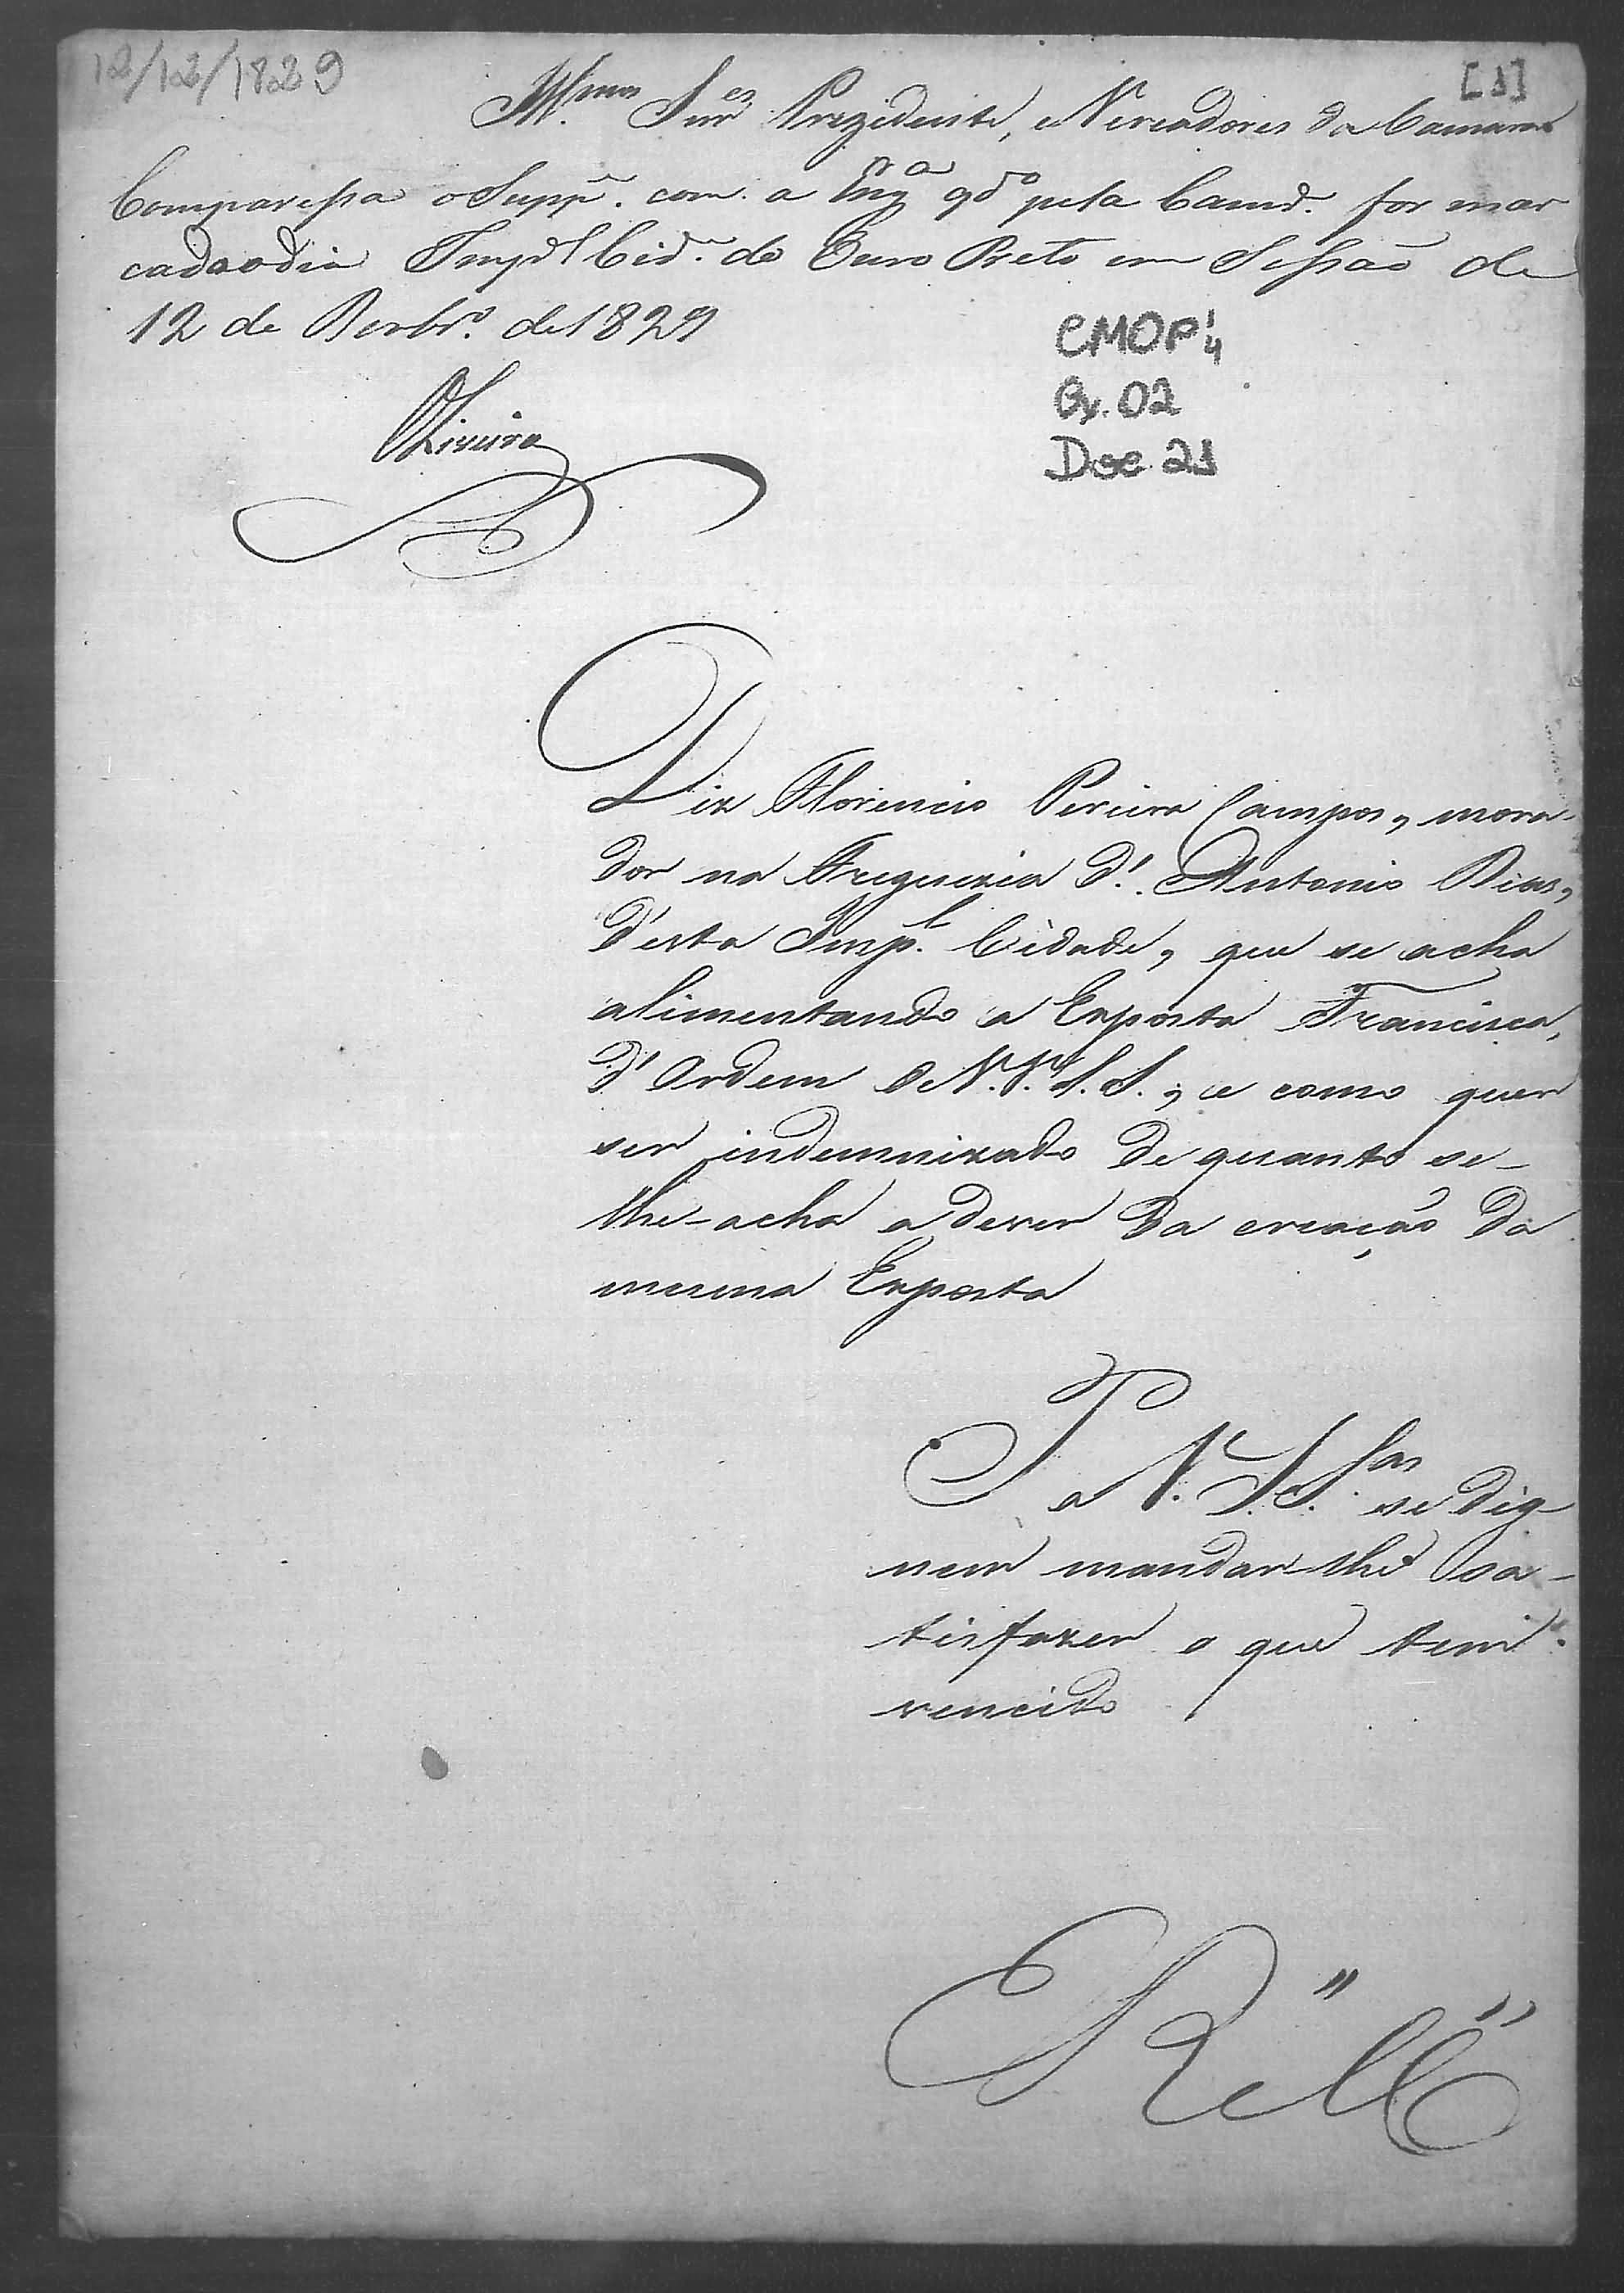 12/12/1829
[1]
Ill.mos Snr.es Prezidente, e Vereadores da Camara
Comparessa o Supp.e com a Eng.a qdo pela Camr.a for mar
cado o dia Imp.l Cid.e do Ouro Preto em Sessão de
12 de Dezbr.o de 1829
CMOP 1/4
Cx. 02
Doc. 21
Oliveira
Diz Florencio Pereira Campos, mora-
dor na Freguezia d'. Antonio Dias,
d'esta Imp.l Cidade, que se acha
alimentando a Exposta Francisca,
d'Ordem de V.V. S.S., e como quer
ser indemnizado de quanto se-
lhe-acha a dever da creação da
mesma Exposta
P
a V. S.S.as se dig-
nem mandar-lhe sa-
tisfazer o que tem
vencido
E R" Mce"